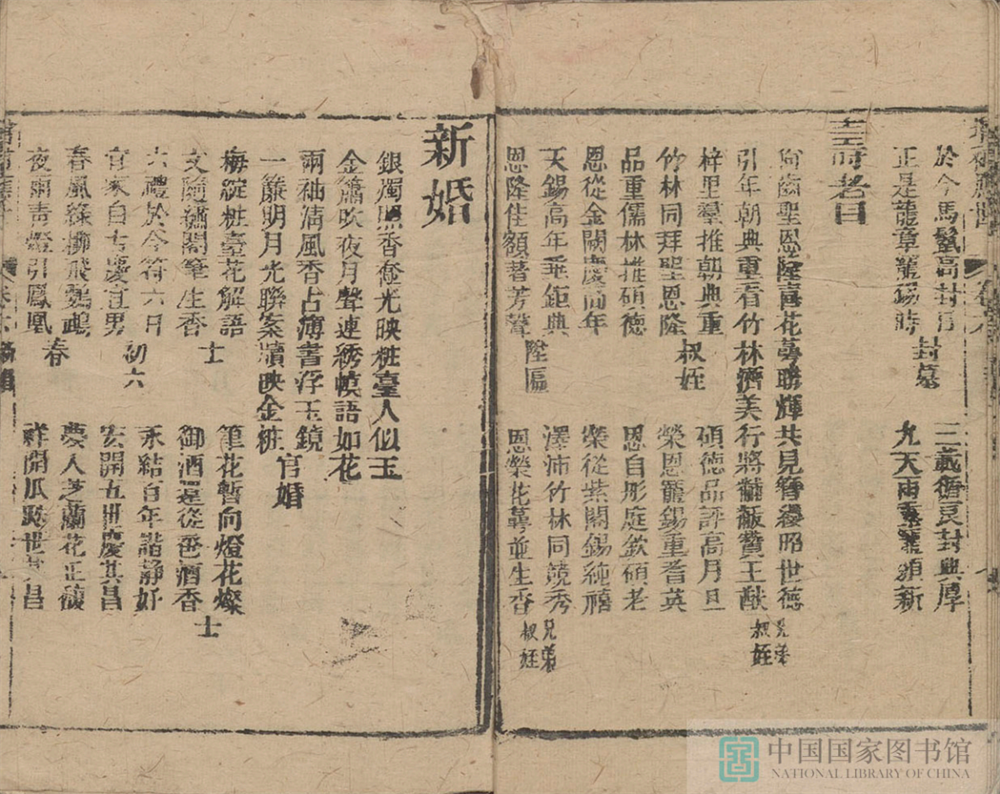 於今馬鬛高封日 封墓 三載循良封典厚
正是龍章寵錫時 九天雨露寵頒新
壽耆目
尚齒聖恩隆喜花萼聯輝共見簪纓昭世德
引年朝典重看竹林濟美行將黼黻贊王猷 兄弟叔姪
梓里羣推朝典重 碩德品評高月旦
竹林同拜聖恩隆 叔姪 榮恩寵錫重耆英
品重儒林推碩德 恩自彤庭欽碩老
恩從金闕慶高年 榮從紫閣錫純禧
天錫高年垂鉅典 澤沛竹林同競秀
恩隆佳額著芳聲 陞匾 恩榮花萼並生香 兄弟叔姪
新婚
銀燭照香奩光映粧臺人似玉
金簫吹夜月聲連綉幙語如花
兩袖清風香占薄書浮玉鏡
一簾明月光聯案牘映金粧 官婚
梅綻粧臺花解語 筆花暫向燈花燦
文隨繡閣筆生香 士 御酒還從巹酒香 士
六禮於今符六日 永結百年諧靜好
宜家自古慶宜男 初六 宏開五世慶其昌
春風綠柳飛鸚鵡 夢人芝蘭花正馥
夜雨青燈引鳳凰 春 祥開瓜瓞世其昌
中国国家图书馆
NATIONAL LIBRARY OF CHINA